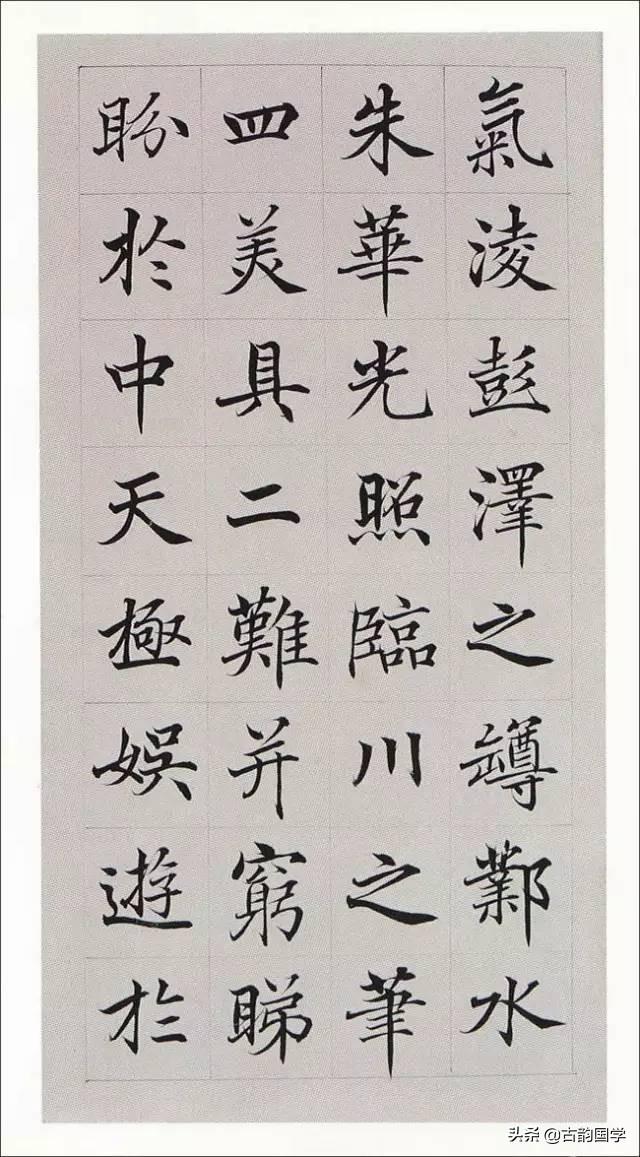 氣淩彭澤之罇鄴水
朱華光照臨川之筆
四美具二難并窮睇
眄於中天極娛遊於
头条 @古韵国学